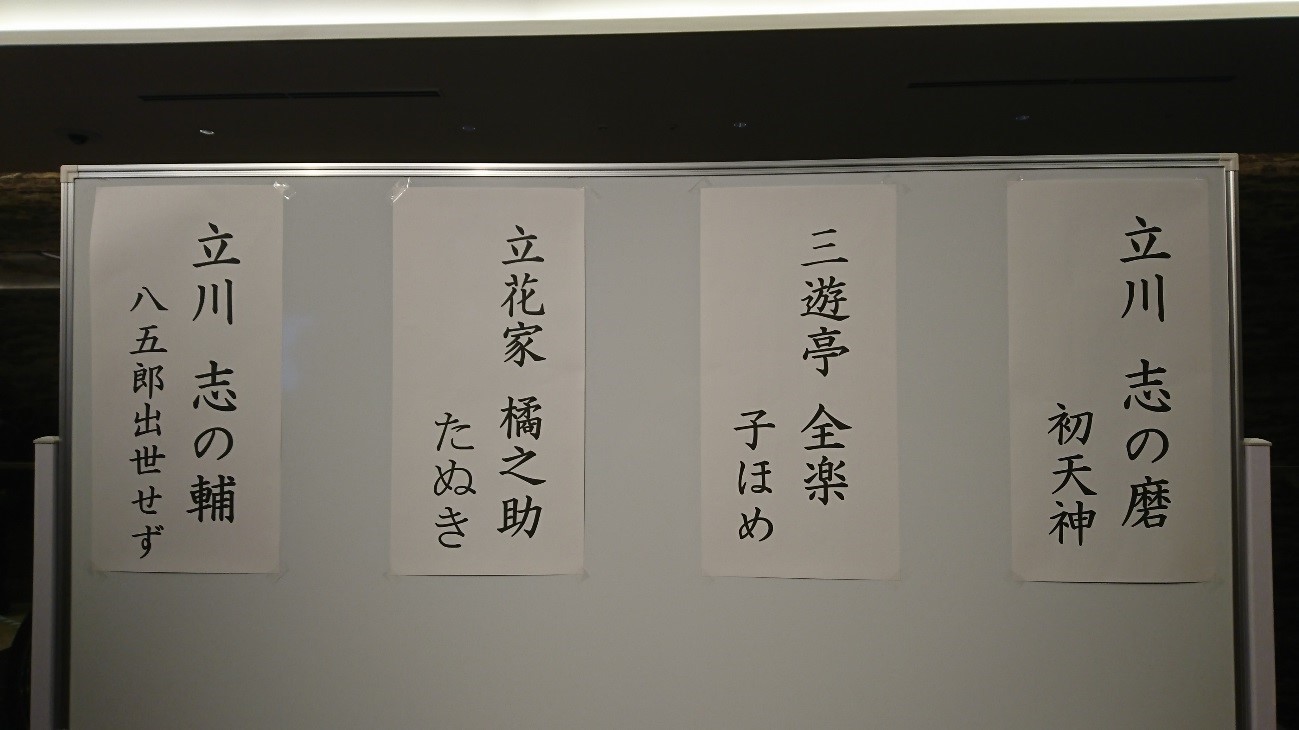 立川 志の磨
初天神
三遊亭 全楽
子ほめ
立花家 橘之助
たぬき
立川 志の輔
八五郎出世せず